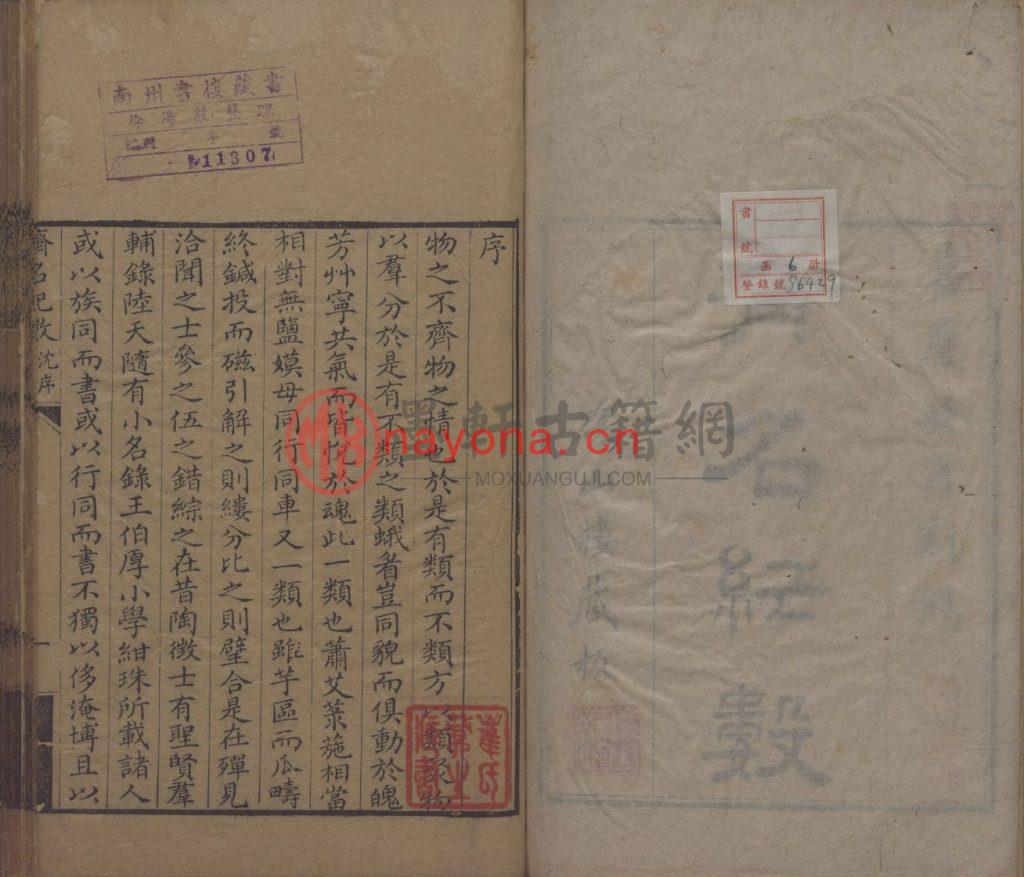 南州書樓藏書
徐湯殷整理
號
11307
序
物之不齊物之情也於是有類而不類方以類聚物
以羣分於是有不類之類蛾着豈同貌而俱動於魄
芳艸寧共氣而皆悅於魂此一類也蕭艾菉葹相當
相對無鹽嫫母同行同車又一類也雖芋區而瓜疇
終鍼投而磁引解之則縷分比之則璧合是在殫見
洽聞之士參之伍之錯綜之在昔陶徴士有聖賢羣
輔錄陸天隨有小名錄王伯厚小學紺珠所載諸人
或以族同而書或以行同而書不獨以侈淹博且以
齊名紀數 沈序
一
書
號
函 6 册
登錄號 96429
齊名紀數
樓藏板
墨軒古籍網
nayona.cn
MOXUANGUJI.COM